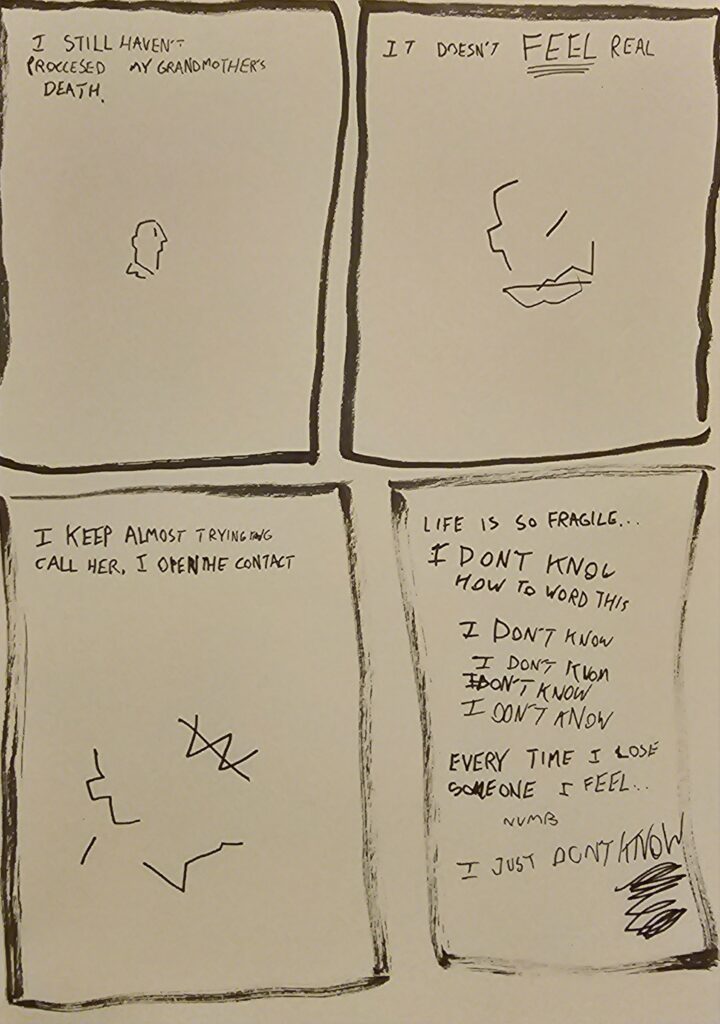 I STILL HAVEN'T
PROCCESED MY GRANDMOTHER'S
DEATH.
IT DOESN'T FEEL REAL
I KEEP ALMOST TRYINGING
CALL HER, I OPEN THE CONTACT
LIFE IS SO FRAGILE...
I DONT KNOW
HOW TO WORD THIS
I DON'T KNOW
I DON'T KNOW
I DON'T KNOW
I DON'T KNOW
EVERY TIME I LOSE
SOMEONE I FEEL...
NUMB
I JUST DONT KNOW